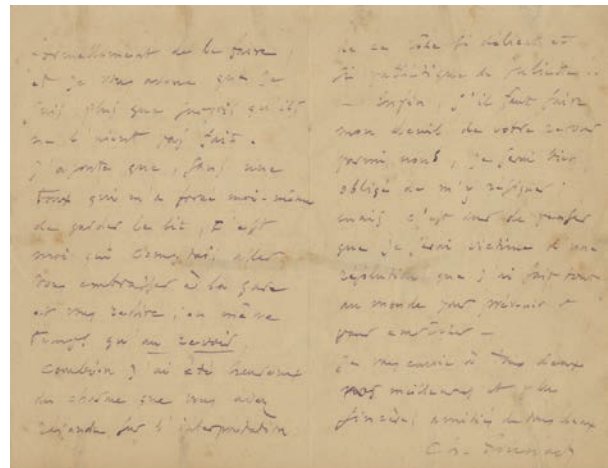 formellement de le faire,
et je vous avoue que je
suis plus que surpris qu'ils
ne l'aient pas fait.
J'ajoute que, sans une
toux qui m'a forcé moi-même
de garder le lit, c'est
moi qui comptais aller
vous embrasser à la gare
et vous redire, en même
temps qu'au revoir,
Combien j'ai été heureux
du charme que vous avez
répandu sur l'interprétation
de ce rôle si délicat et
si pathétique de
— Enfin, s'il faut faire
mon deuil de votre
parmi nous, je serai bien
obligé de m'y résigner ;
mais c'est dur de penser
que je serai victime d'une
résolution que j'ai fait tout
au monde pour prévenir et
pour
Je vous envoie à tous deux
nos et plus
sincères amitiés de tous deux
Ch. Gounod